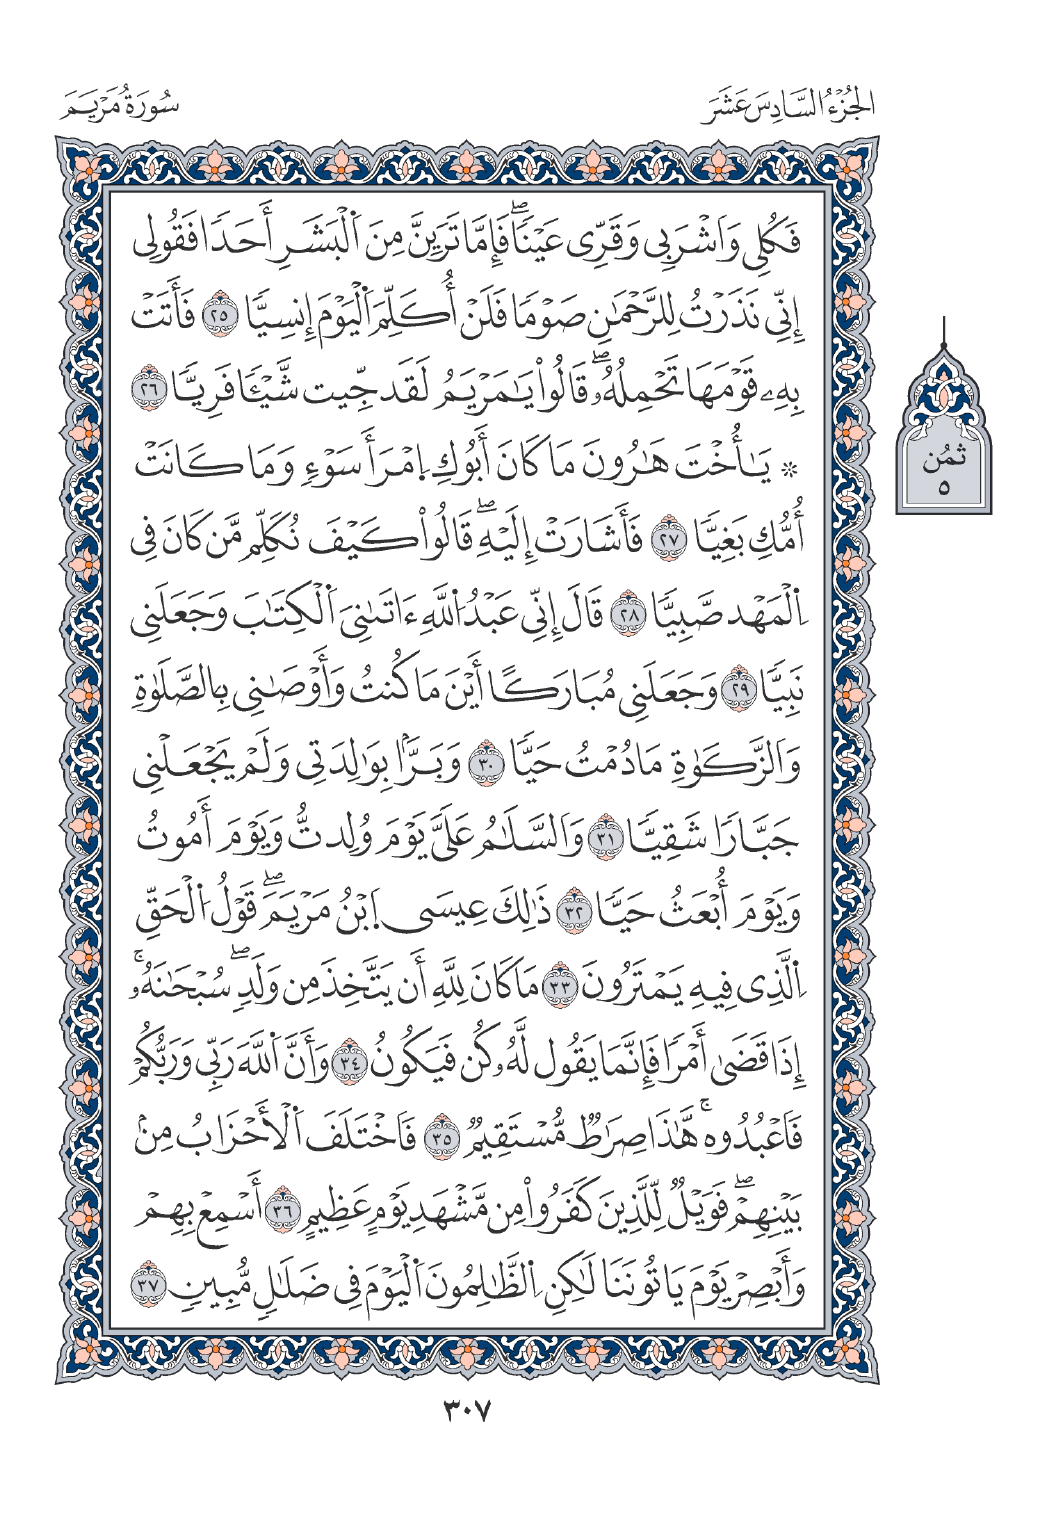 الجُزْءُ السَّادِسَ عَشَرَ
سُورَةُ مَرْيَمَ
فَكُلِي وَاَشْرَبِي وَقَرِّي عَيْنٗاۖ فَإِمَّا تَرَيِنَّ مِنَ اَلْبَشَرِ أَحَدٗا فَقُولِي
إِنِّي نَذَرْتُ لِلرَّحْمَٰنِ صَوْمٗا فَلَنْ أُكَلِّمَ اَلْيَوْمَ إِنسِيّٗا ٢٥ فَأَتَتْ
بِهِۦ قَوْمَهَا تَحْمِلُهُۥۖ قَالُواْ يَٰمَرْيَمُ لَقَد جِّيتِ شَيْـٔٗا فَرِيّٗا ٢٦
۞ يَٰأُخْتَ هَٰرُونَ مَا كَانَ أَبُوكِ اِمْرَأَ سَوْءٖ وَمَا كَانَتْ
أُمُّكِ بَغِيّٗا ٢٧ فَأَشَارَتْ إِلَيْهِۖ قَالُواْ كَيْفَ نُكَلِّم مَّن كَانَ فِي
اِلْمَهْد صَّبِيّٗا ٢٨ قَالَ إِنِّي عَبْدُ اُللَّهِ ءَاتَىٰنِيَ اَلْكِتَٰبَ وَجَعَلَنِي
نَبِيّٗا ٢٩ وَجَعَلَنِي مُبَارَكًا أَيْنَ مَا كُنتُ وَأَوْصَٰنِي بِالصَّلَوٰةِ
وَاَلزَّكَوٰةِ مَا دُمْتُ حَيّٗا ٣٠ وَبَرَّۢا بِوَٰلِدَتِي وَلَمْ يَجْعَلْنِي
جَبَّارٗا شَقِيّٗا ٣١ وَاَلسَّلَٰمُ عَلَيَّ يَوْمَ وُلِدتُّ وَيَوْمَ أَمُوتُ
وَيَوْمَ أُبْعَثُ حَيّٗا ٣٢ ذَٰلِكَ عِيسَى اَبْنُ مَرْيَمَۖ قَوْلُ اُلْحَقِّ
اِلَّذِي فِيهِ يَمْتَرُونَ ٣٣ مَا كَانَ لِلَّهِ أَن يَتَّخِذَ مِن وَلَدٖۖ سُبْحَٰنَهُۥۚ
إِذَا قَضَىٰ أَمْرٗا فَإِنَّمَا يَقُول لَّهُۥ كُن فَيَكُونُ ٣٤ وَأَنَّ اَللَّهَ رَبِّي وَرَبُّكُمْ
فَاَعْبُدُوهۚ هَّٰذَا صِرَٰطٞ مُّسْتَقِيمٞ ٣٥ فَاَخْتَلَفَ اَلْأَحْزَابُ مِنۢ
بَيْنِهِمْۖ فَوَيْلٞ لِّلَّذِينَ كَفَرُواْ مِن مَّشْهَدِ يَوْمٍ عَظِيمٍ ٣٦ أَسْمِعْ بِهِمْ
وَأَبْصِرْ يَوْمَ يَاتُونَنَا لَٰكِنِ اِلظَّٰلِمُونَ اَلْيَوْمَ فِي ضَلَٰلٖ مُّبِينٖ ٣٧
ثُمُن
٥
٣٠٧